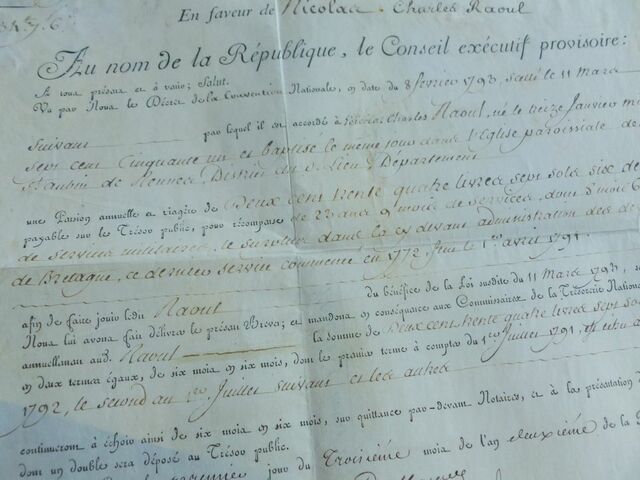 En faveur de Nicolas Charles Raoul
Au nom de la République, le Conseil exécutif provisoire:
A tous présens et à venir; Salut.
Vu par Nous le Décret de la Convention Nationale, en date du 8 février 1793, scellé le 11 Mars
suivant par lequel il est accordé à Nicolas Charles Raoul, né le treize Janvier mil
sept cent Cinquante un et baptisé le même jour dans l'Eglise paroissiale de
St aubin de Rennes, District du d. Lieu, Département
une Pension annuelle et viagère de Deux cent trente quatre livres sept sols six de
payable sur le Trésor public, pour récompense de 23 ans 9 mois de services, dont 8 mois
de services militaires, le surplus dans la cy devant administration des
de Bretagne, ce dernier service commencé en 1772, fini le 1er avril 1791.
du bénéfice de la Loi susdite du 11 Mars 1793,
afin de faire jouir ledit Raoul
Nous lui avons fait délivrer le présent Brevet; et mandons en conséquence aux Commissaires de la Trésorerie Nationale
annuellement aud. Raoul la somme de Deux cent trente quatre livres sept sols
en deux termes égaux, de six mois en six mois, dont le premier terme à compter du 1er Juillet 1791
1792, le second au 1er Juillet suivant et les autres
continueront à échoir ainsi de six mois en six mois, sur quittance par-devant Notaires, et à la présentation
dont un double sera déposé au Trésor public.
jour du Troisième mois de l'an deuxième de la